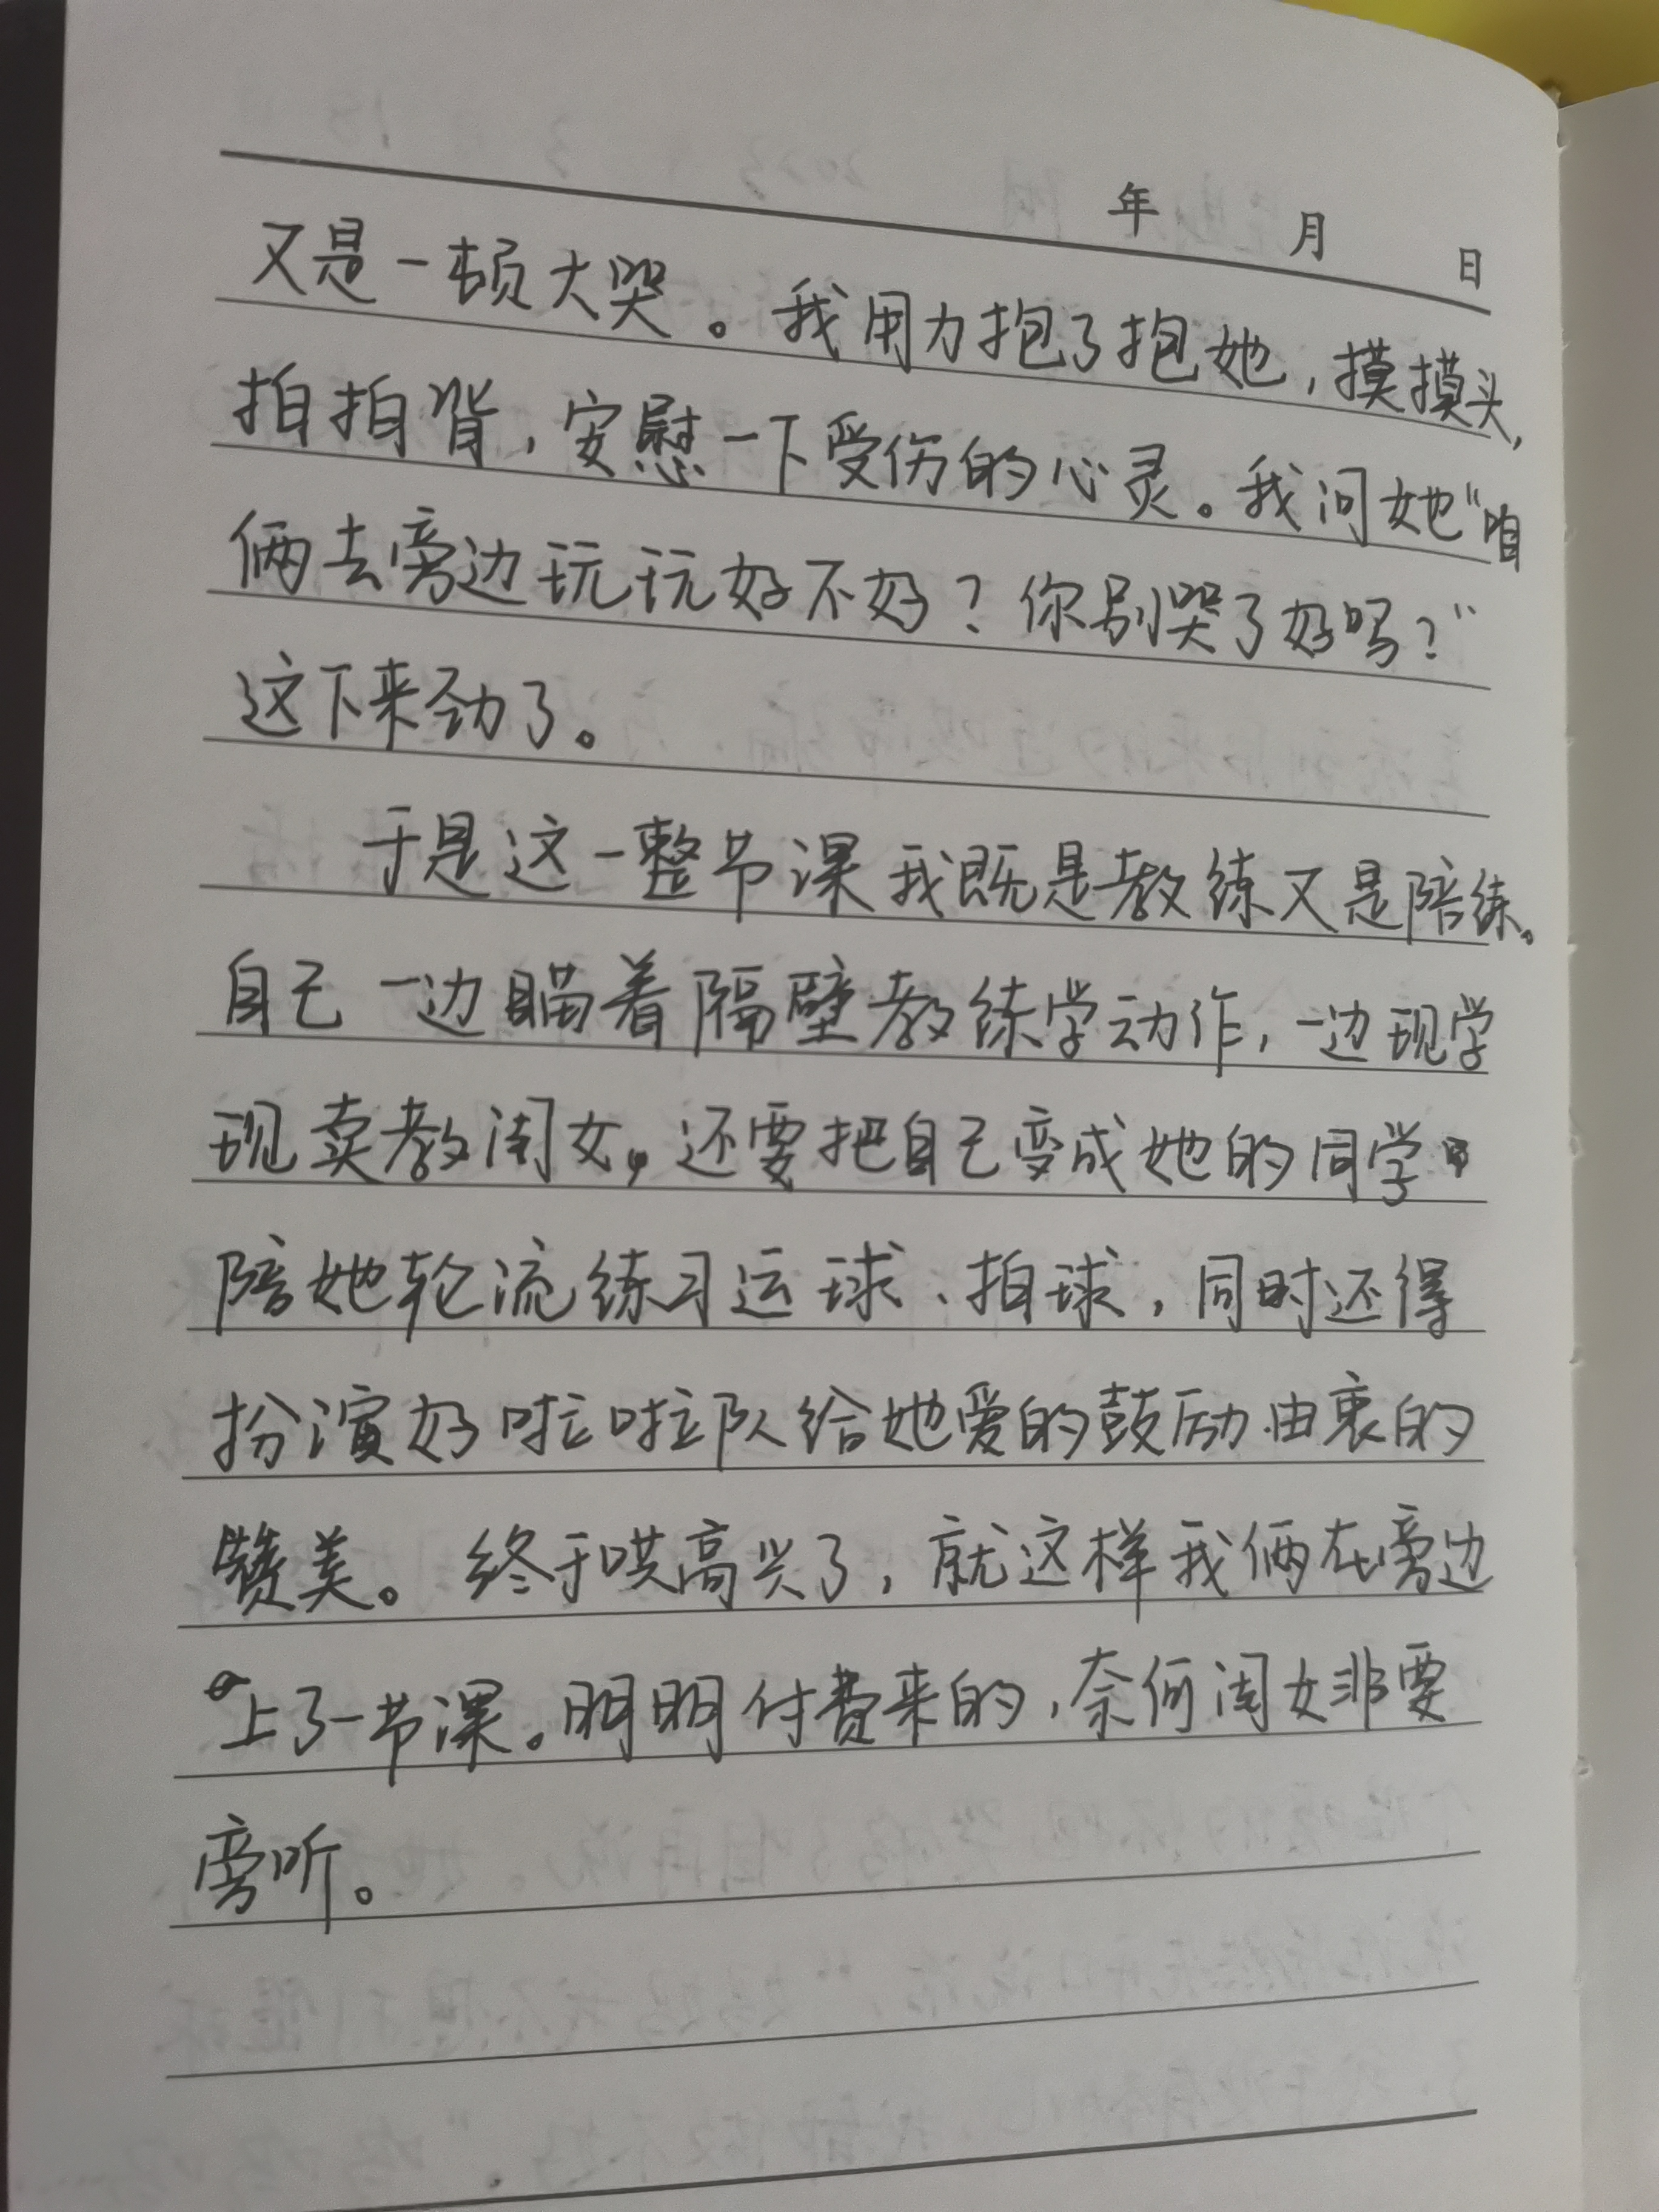 年 月 日
又是一顿大哭。我用力抱了抱她，摸摸头，
拍拍背，安慰一下受伤的心灵。我问她“咱
俩去旁边玩玩好不好？你别哭了好吗？”
这下来劲了。
于是这一整节课我既是教练又是陪练。
自己一边瞄着隔壁教练学动作，一边现学
现卖教闺女，还要把自己变成她的同学
陪她轮流练习运球、拍球，同时还得
扮演好啦啦队给她爱的鼓励由衷的
赞美。终于哄高兴了，就这样我俩在旁边
上了一节课。明明付费来的，奈何闺女非要
旁听。